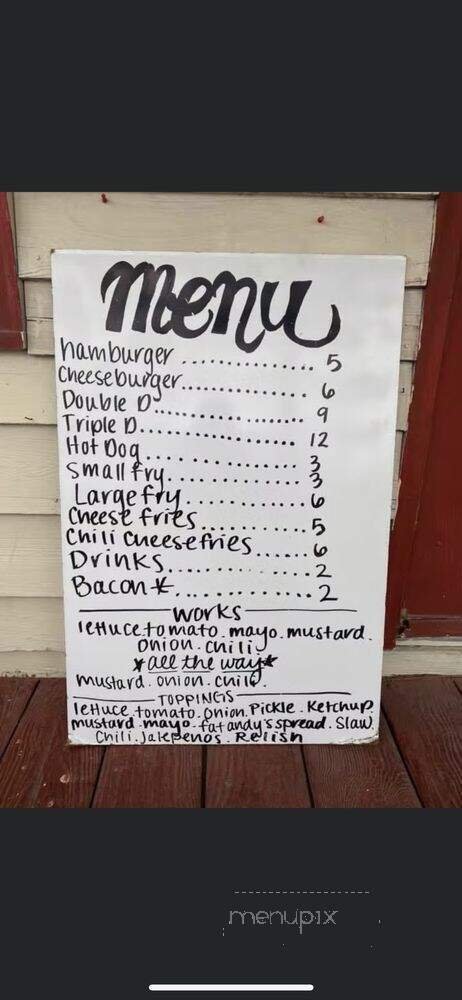 menu
hamburger .............. 5
Cheeseburger............. 6
Double D................. 9
Triple D................. 12
Hot Dog................. 3
Small fry................. 3
Large fry............. 6
Cheese fries............ 5
Chili Cheese fries...... 6
Drinks............... 2
Bacon*............... 2
works
lettuce.tomato.mayo.mustard.
onion.chili
*all the way*
mustard.onion.chili.
TOPPINGS
lettuce.tomato.onion.Pickle.Ketchup.
mustard.mayo.fatandy's spread.Slaw.
Chili.Jalepenos.Relish
menupix